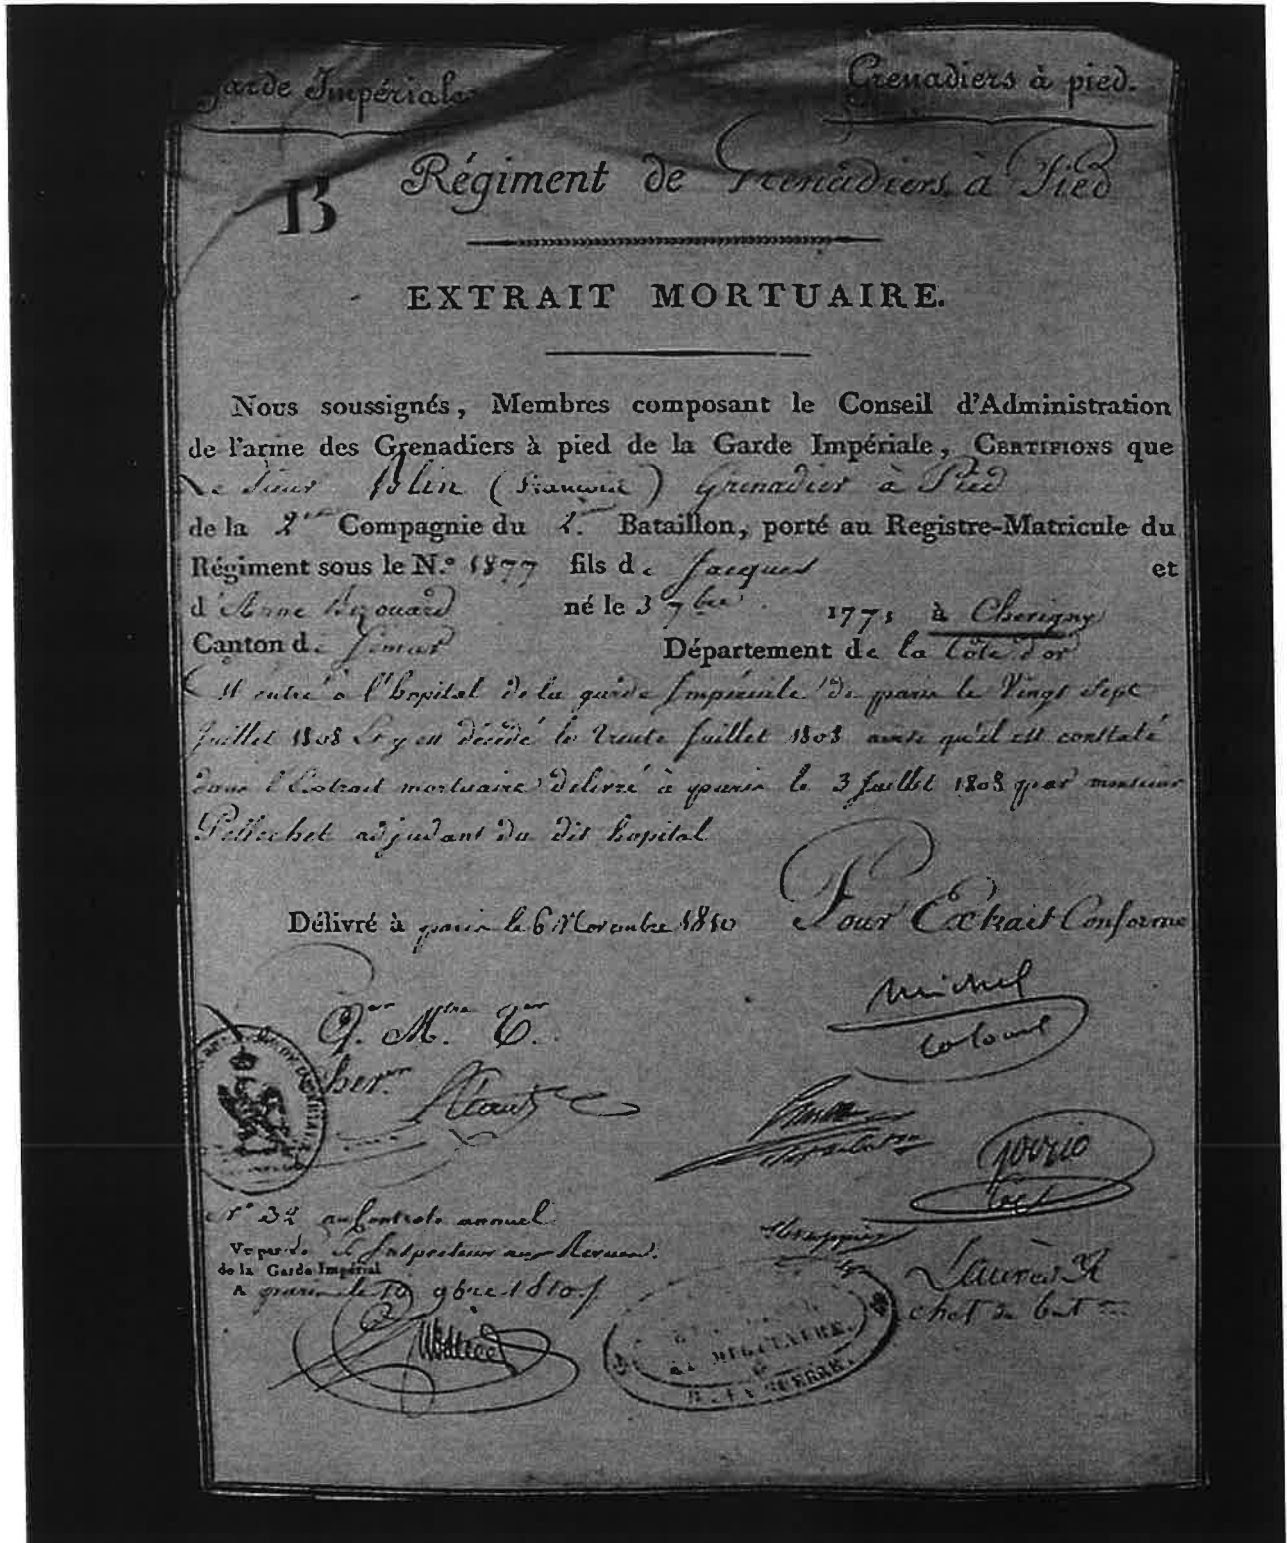 Garde Impériale
Grenadiers à pied.
B
Régiment de Grenadiers à Pied
EXTRAIT MORTUAIRE.
Nous soussignés, Membres composant le Conseil d'Administration
de l'arme des Grenadiers à pied de la Garde Impériale, CERTIFIONS que
Le Sieur Blin (François) Grenadier à Pied
de la 2me Compagnie du 2. Bataillon, porté au Registre-Matricule du
Régiment sous le N.º 1877 fils de Jacques et
d'Anne né le 3 7bre 1773 à Cherigny
Canton de Semur Département de la Côte d'or
Il entré à l'hopital de la garde Impériale de paris le Vingt Sept
Juillet 1808 Et y est décédé le trente Juillet 1808 ainsi qu'il est constaté
dans l'Extrait mortuaire délivré à paris le 3 Juillet 1808 par monsieur
Pellechet adjudant du dit hopital
Délivré à paris le 6 Novembre 1810 Pour Extrait Conforme
michel
Colonel
Q. M. T.
N° 32 au Controle annuel
Vu par l'Inspecteur aux Revues.
de la Garde Impérial
A paris le 10 9bre 1810
chef de bat
GUERRE.